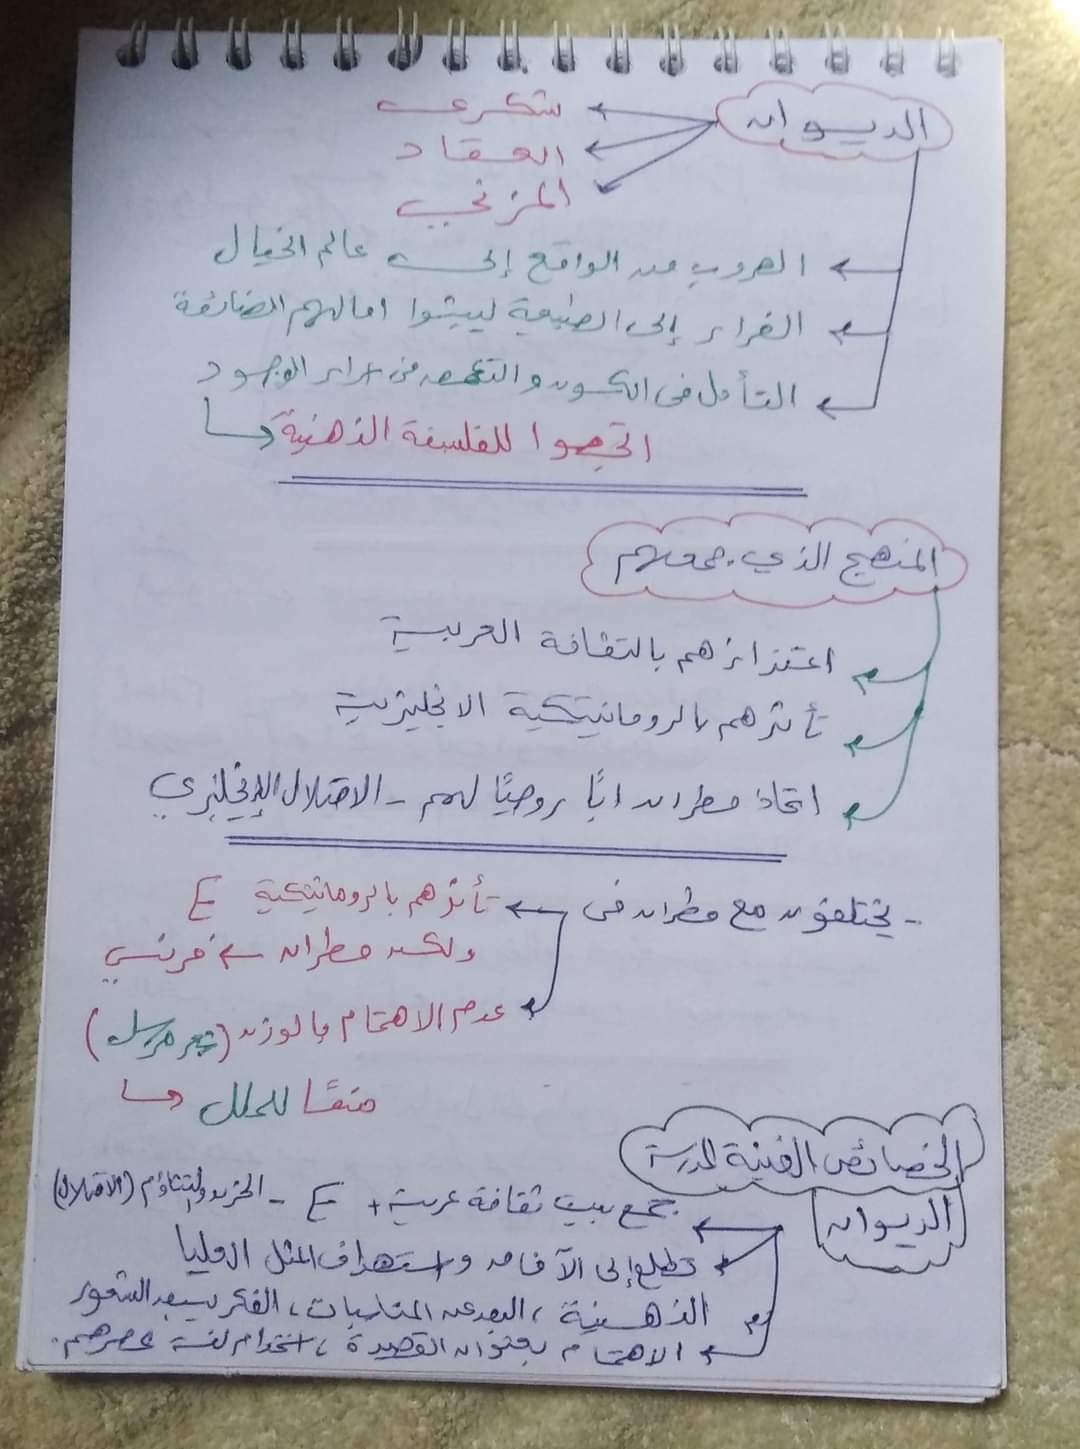 الديوان
شكرى
العقاد
المزنى
الهروب من الواقع إلى عالم الخيال
الفرار إلى الطبيعة ليبثوا امالهم الضائعة
التأمل فى الكون والتعمق فى اسرار الوجود
اتجهوا للفلسفة الذهنية
المنهج الذي جمعهم
اعتزازهم بالثقافة العربية
تأثرهم بالرومانتيكية الانجليزية
اتخاذ مطران ابًا روحيًا لهم - الاحتلال الإنجليزي
- يختلفون مع مطران فى
تأثرهم بالرومانتيكية E
ولكن مطران ← فرنسي
عدم الاهتمام بالوزن (شعر مرسل)
منعًا للملل
الخصائص الفنية لمدرسة
الديوان
جمع بين ثقافة عربية + E - الحزن والتشاؤم (الاحتلال)
تطلع إلى الآفاق واستهداف المثل العليا
الذهنية ، البعد عن المناسبات ، الفكر يسبق الشعور
الاهتمام بعنوان القصيدة ، استخدام لغة عصرهم.